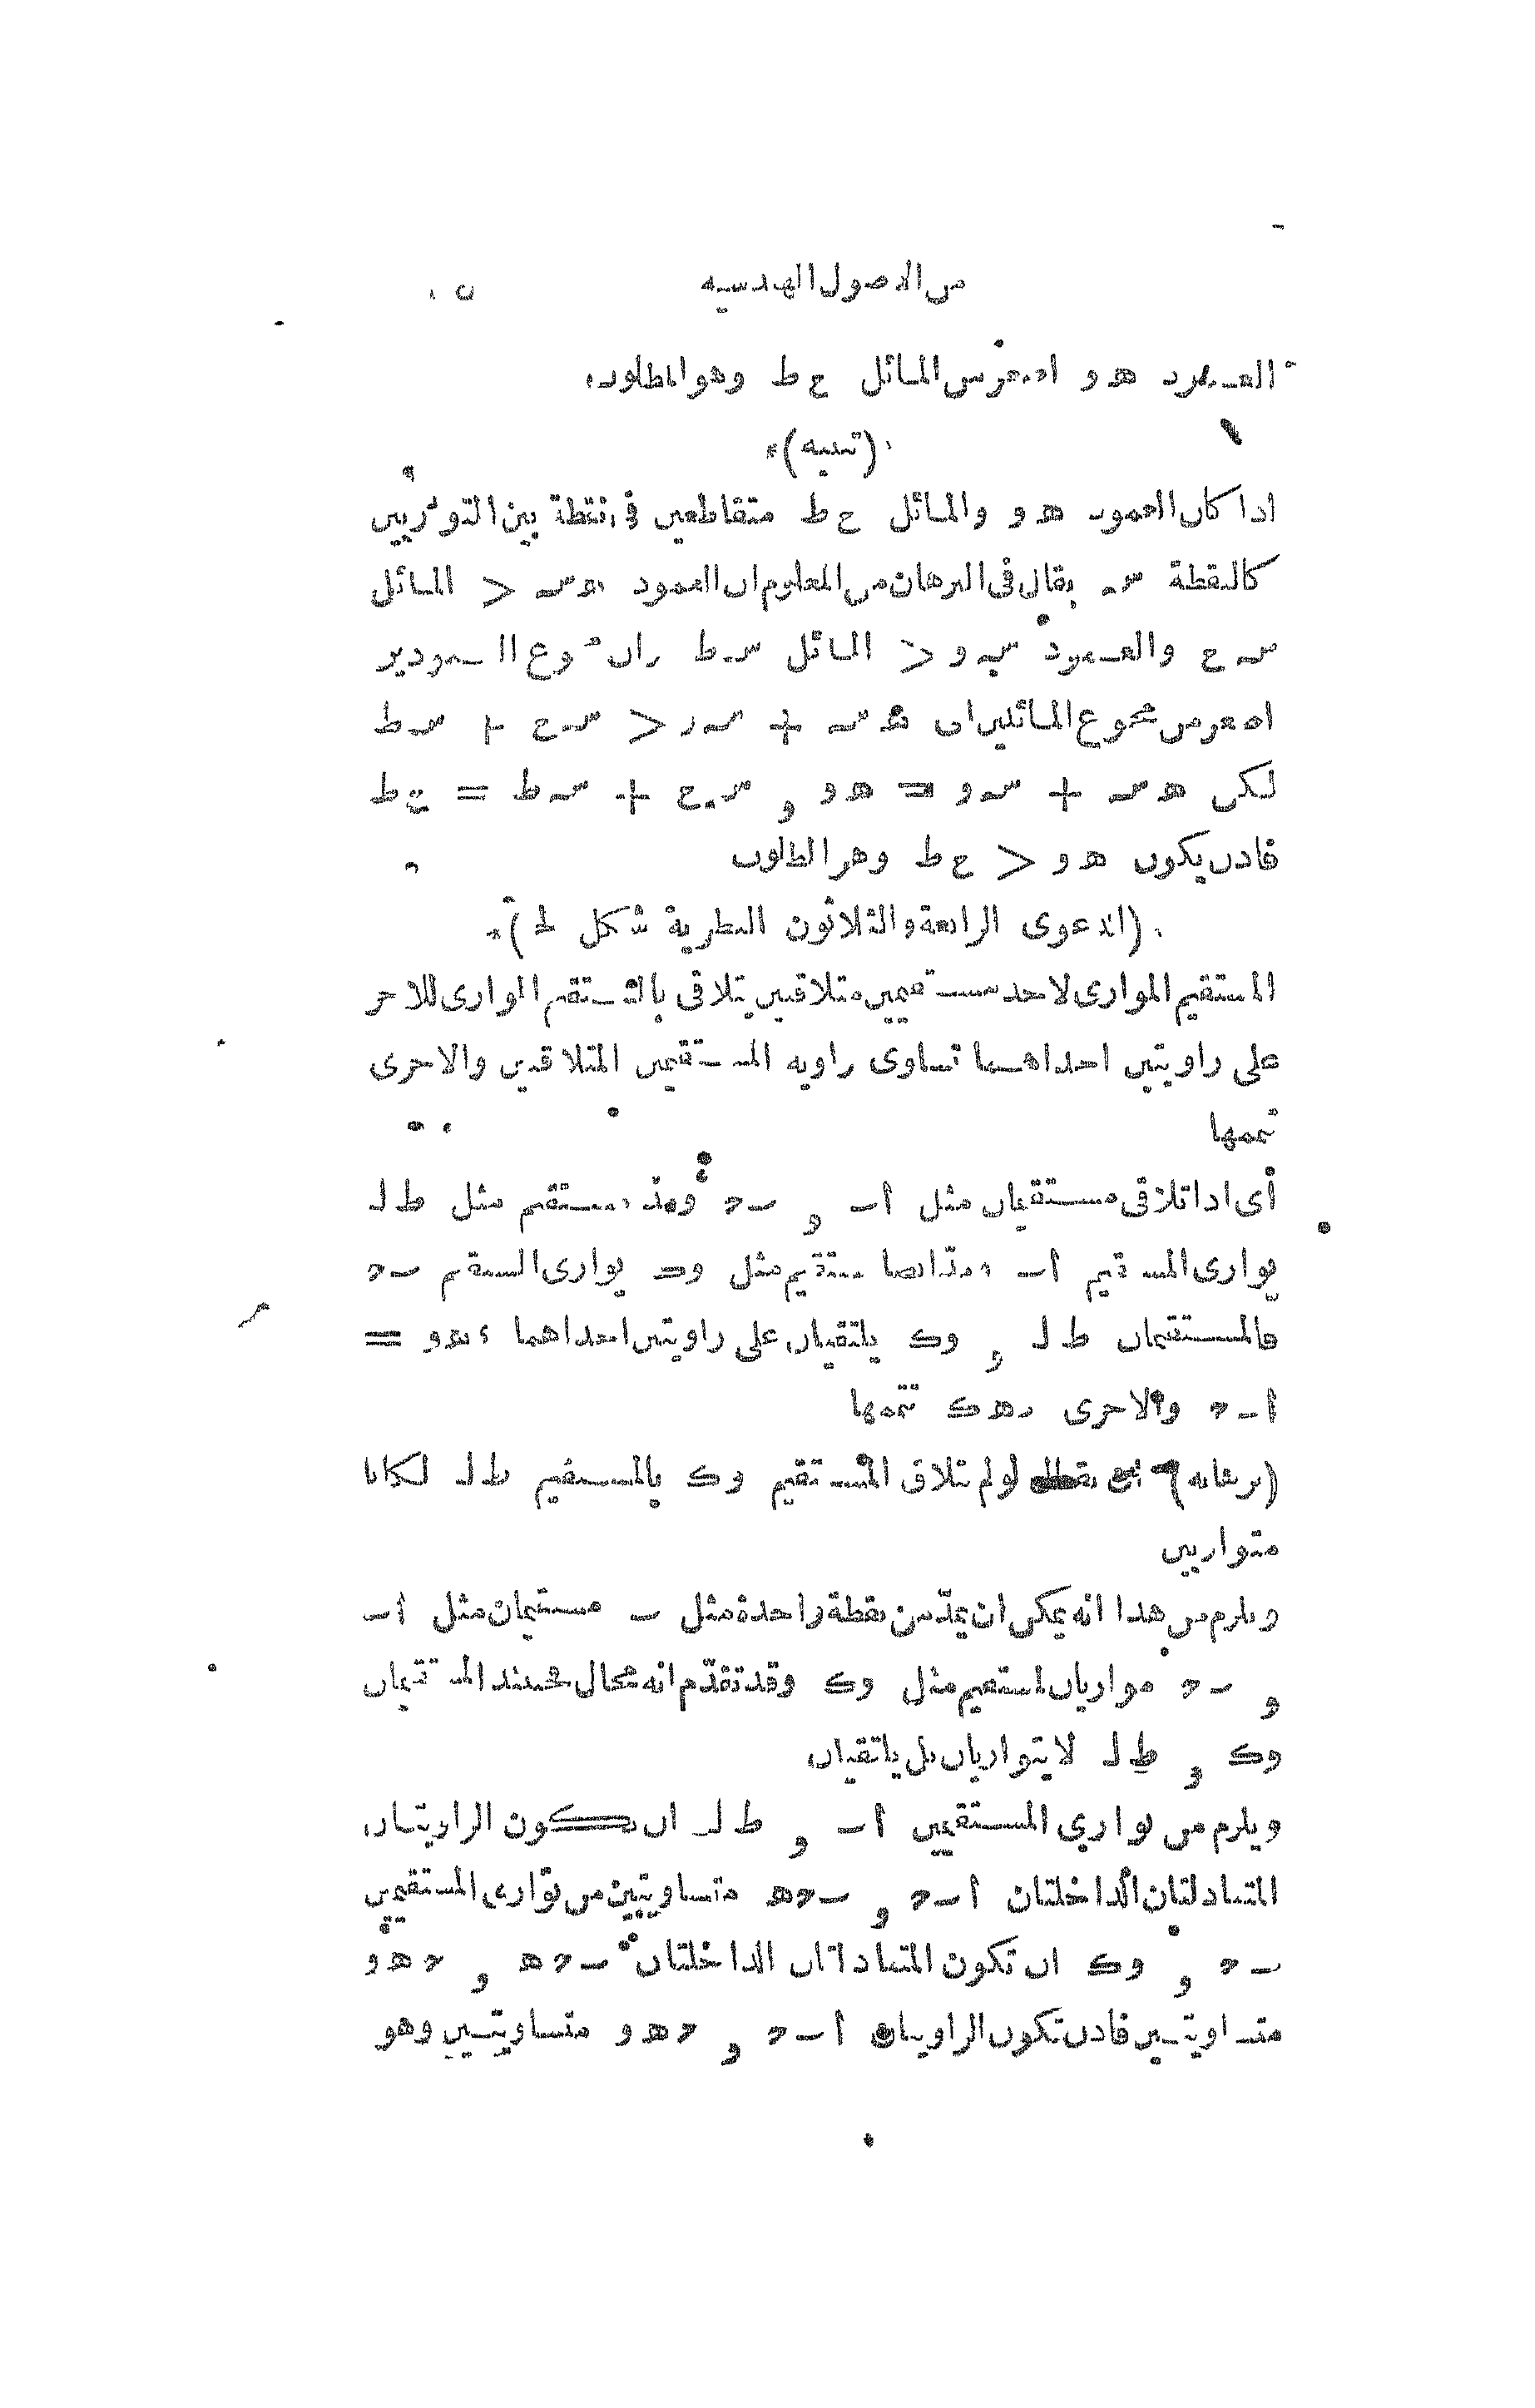 من الاصول الهندسيه ٥
العمود هو اصغر من المائل ح ط وهو المطلوب
*(تنبيه)*
اذا كان العمود هو والمائل ح ط متقاطعين في نقطة بين المتوازيين
كالنقطة سـ يقال في البرهان من المعلوم ان العمود هسـ < المائل
سـح والعمود سـو < المائل سـط وان مجموع العمودين
اصغر من مجموع المائلين اى هسـ + سـو < سـح + سـط
لكن هسـ + سـو = هو و سـح + سـط = ح ط
فاذن يكون هو < ح ط وهو المطلوب
*(الدعوى الرابعة والثلاثون النظرية شكل لح)*
المستقيم الموازى لاحد مستقيمين متلاقيين يتلاقى بالمستقيم الموازى للاخر
على زاويتين احداهما تساوى زاويه المستقيمين المتلاقيين والاخرى
تتممها
أى اذا تلاقى مستقيمان مثل أب و بء ومد مستقيم مثل ط ل
يوازى المستقيم أب ومد ايضا مستقيم مثل وك يوازى المستقيم بء
فالمستقيمان ط ل و وك يلتقيان على زاويتين احداهما ءهو =
أبء والاخرى ءهك تتممها
(برهانه) لو لم يتلاق المستقيم وك بالمستقيم ط ل لكانا
متوازيين
ويلزم من هذا انه يمكن ان يمد من نقطة واحدة مثل ب مستقيمان مثل أب
و بء موازيان لمستقيم مثل وك وقد تقدم انه محال فحينئذ المستقيمان
وك و ط ل لا يتوازيان بل يلتقيان
ويلزم من توازى المستقيمين أب و ط ل ان تكون الزاويتان
المتبادلتان الداخلتان أبء و بءه متساويتين من توازى المستقيمين
بء و وك ان تكون المتبادلتان الداخلتان بءه و ءهو
متساويتين فاذن تكون الزاويتان أبء و ءهو متساويتين وهو